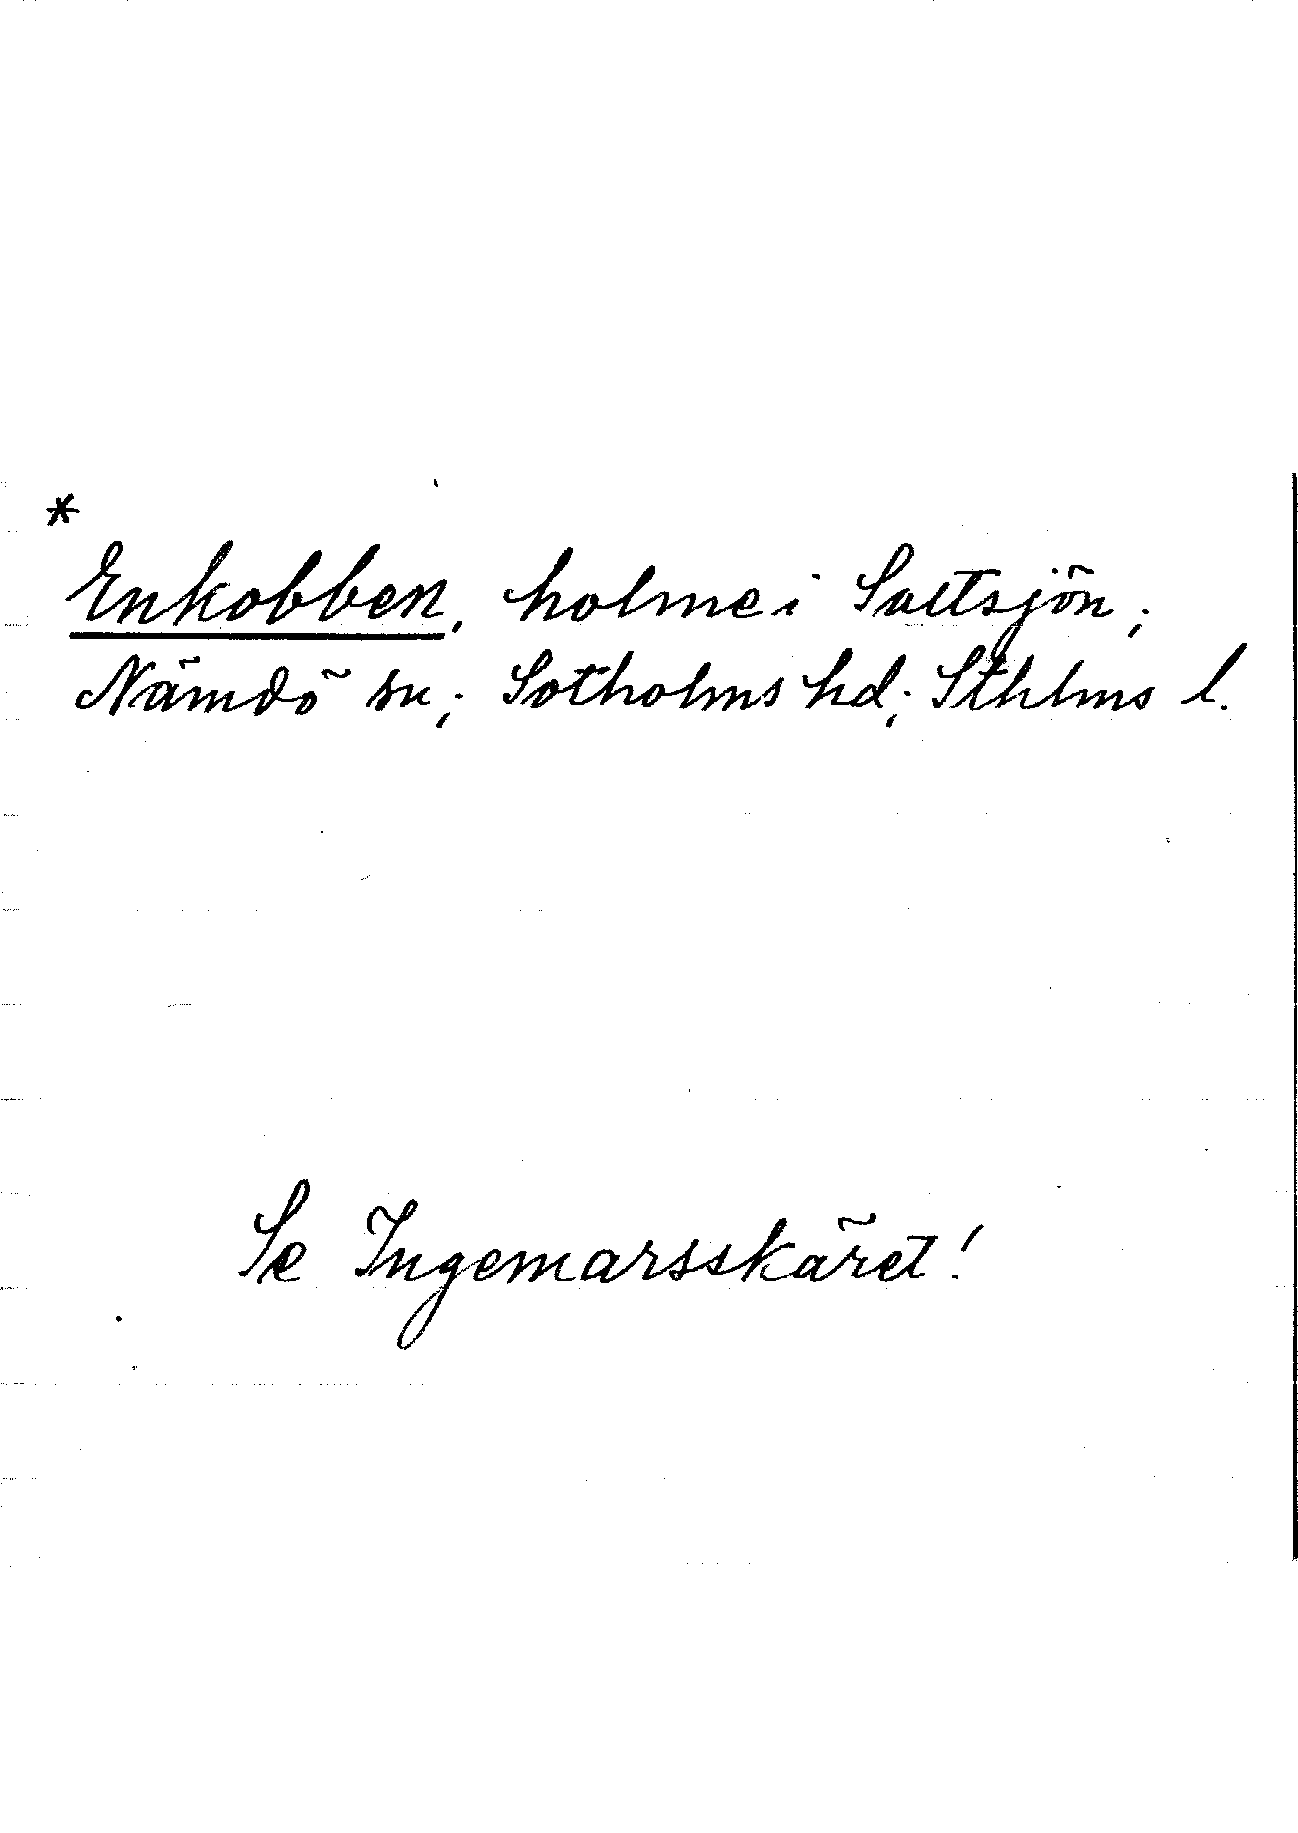 *
Enkobben, holme i Saltsjön;
Nämdö sn; Sotholms hd; Sthlms l.
Se Ingemarsskäret!